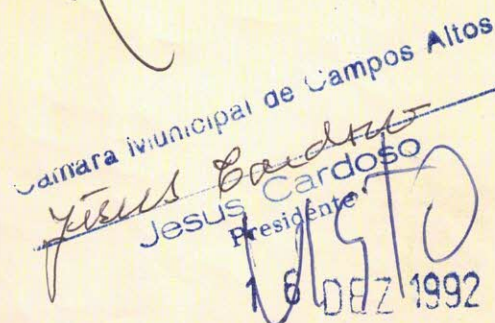 Câmara Municipal de Campos Altos
Jesus Cardoso
Jesus Cardoso
Presidente
VISTO
16 DEZ 1992